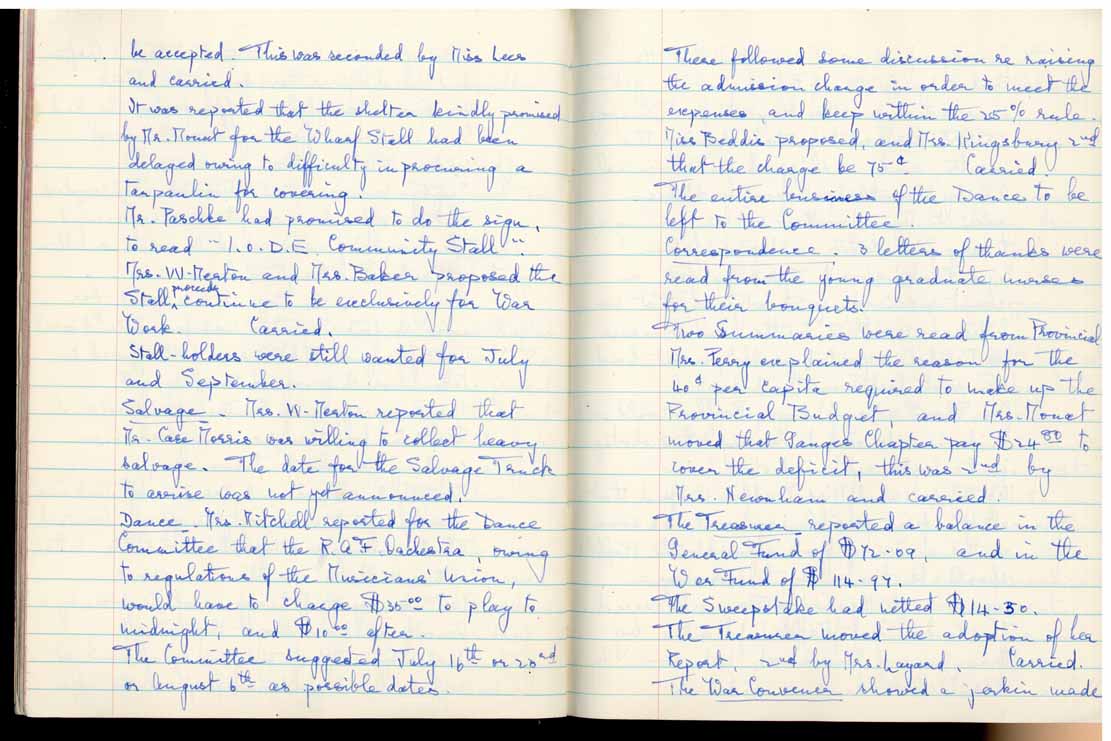 be accepted. This was seconded by Miss Lees
and carried.
It was reported that the shelter kindly promised
by Mr. Mouat for the Wharf Stall had been
delayed owing to difficulty in procuring a
tarpaulin for covering.
Mr. Paschke had promised to do the sign,
to read "I.O.D.E. Community Stall".
Mrs. W-Merton and Mrs. Baker proposed the
Stall proceeds continue to be exclusively for War
Work. Carried.
Stall-holders were still wanted for July
and September.
Salvage. Mrs. W-Merton reported that
Mr. Case Morris was willing to collect heavy
salvage. The date for the Salvage Truck
to arrive was not yet announced.
Dance. Mrs. Mitchell reported for the Dance
Committee that the R.A.F. Orchestra, owing
to regulations of the Musicians' Union,
would have to charge $35.00 to play to
midnight, and $10.00 after.
The Committee suggested July 16th or 23rd
or August 6th as possible dates.
There followed some discussion re raising
the admission charge in order to meet the
expenses, and keep within the 25% rule.
Miss Beddis proposed, and Mrs. Kingsbury 2nd
that the charge be 75¢. Carried.
The entire business of the Dance to be
left to the Committee.
Correspondence. 3 letters of thanks were
read from the young graduate nurses
for their bouquets.
Two Summaries were read from Provincial
Mrs. Perry explained the reason for the
40¢ per capita required to make up the
Provincial Budget, and Mrs. Mouat
moved that Ganges Chapter pay $24.80 to
cover the deficit, this was 2nd by
Mrs. Newnham and carried.
The Treasurer reported a balance in the
General Fund of $72.09, and in the
War Fund of $114.97.
The Sweepstake had netted $14.50.
The Treasurer moved the adoption of her
Report, 2nd by Mrs. Layard. Carried.
The War Convener showed a jerkin made